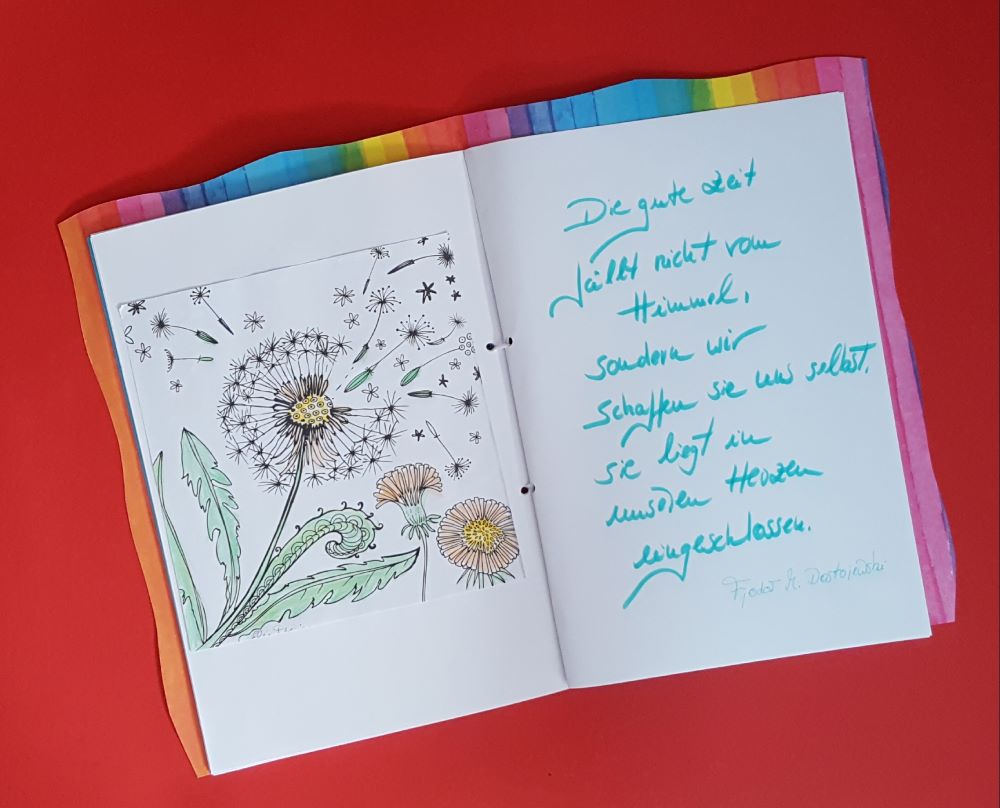 Die gute Zeit
fällt nicht vom
Himmel,
sondern wir
schaffen sie uns selbst,
sie liegt in
unseren Herzen
eingeschlossen.
Fjodor M. Dostojewski